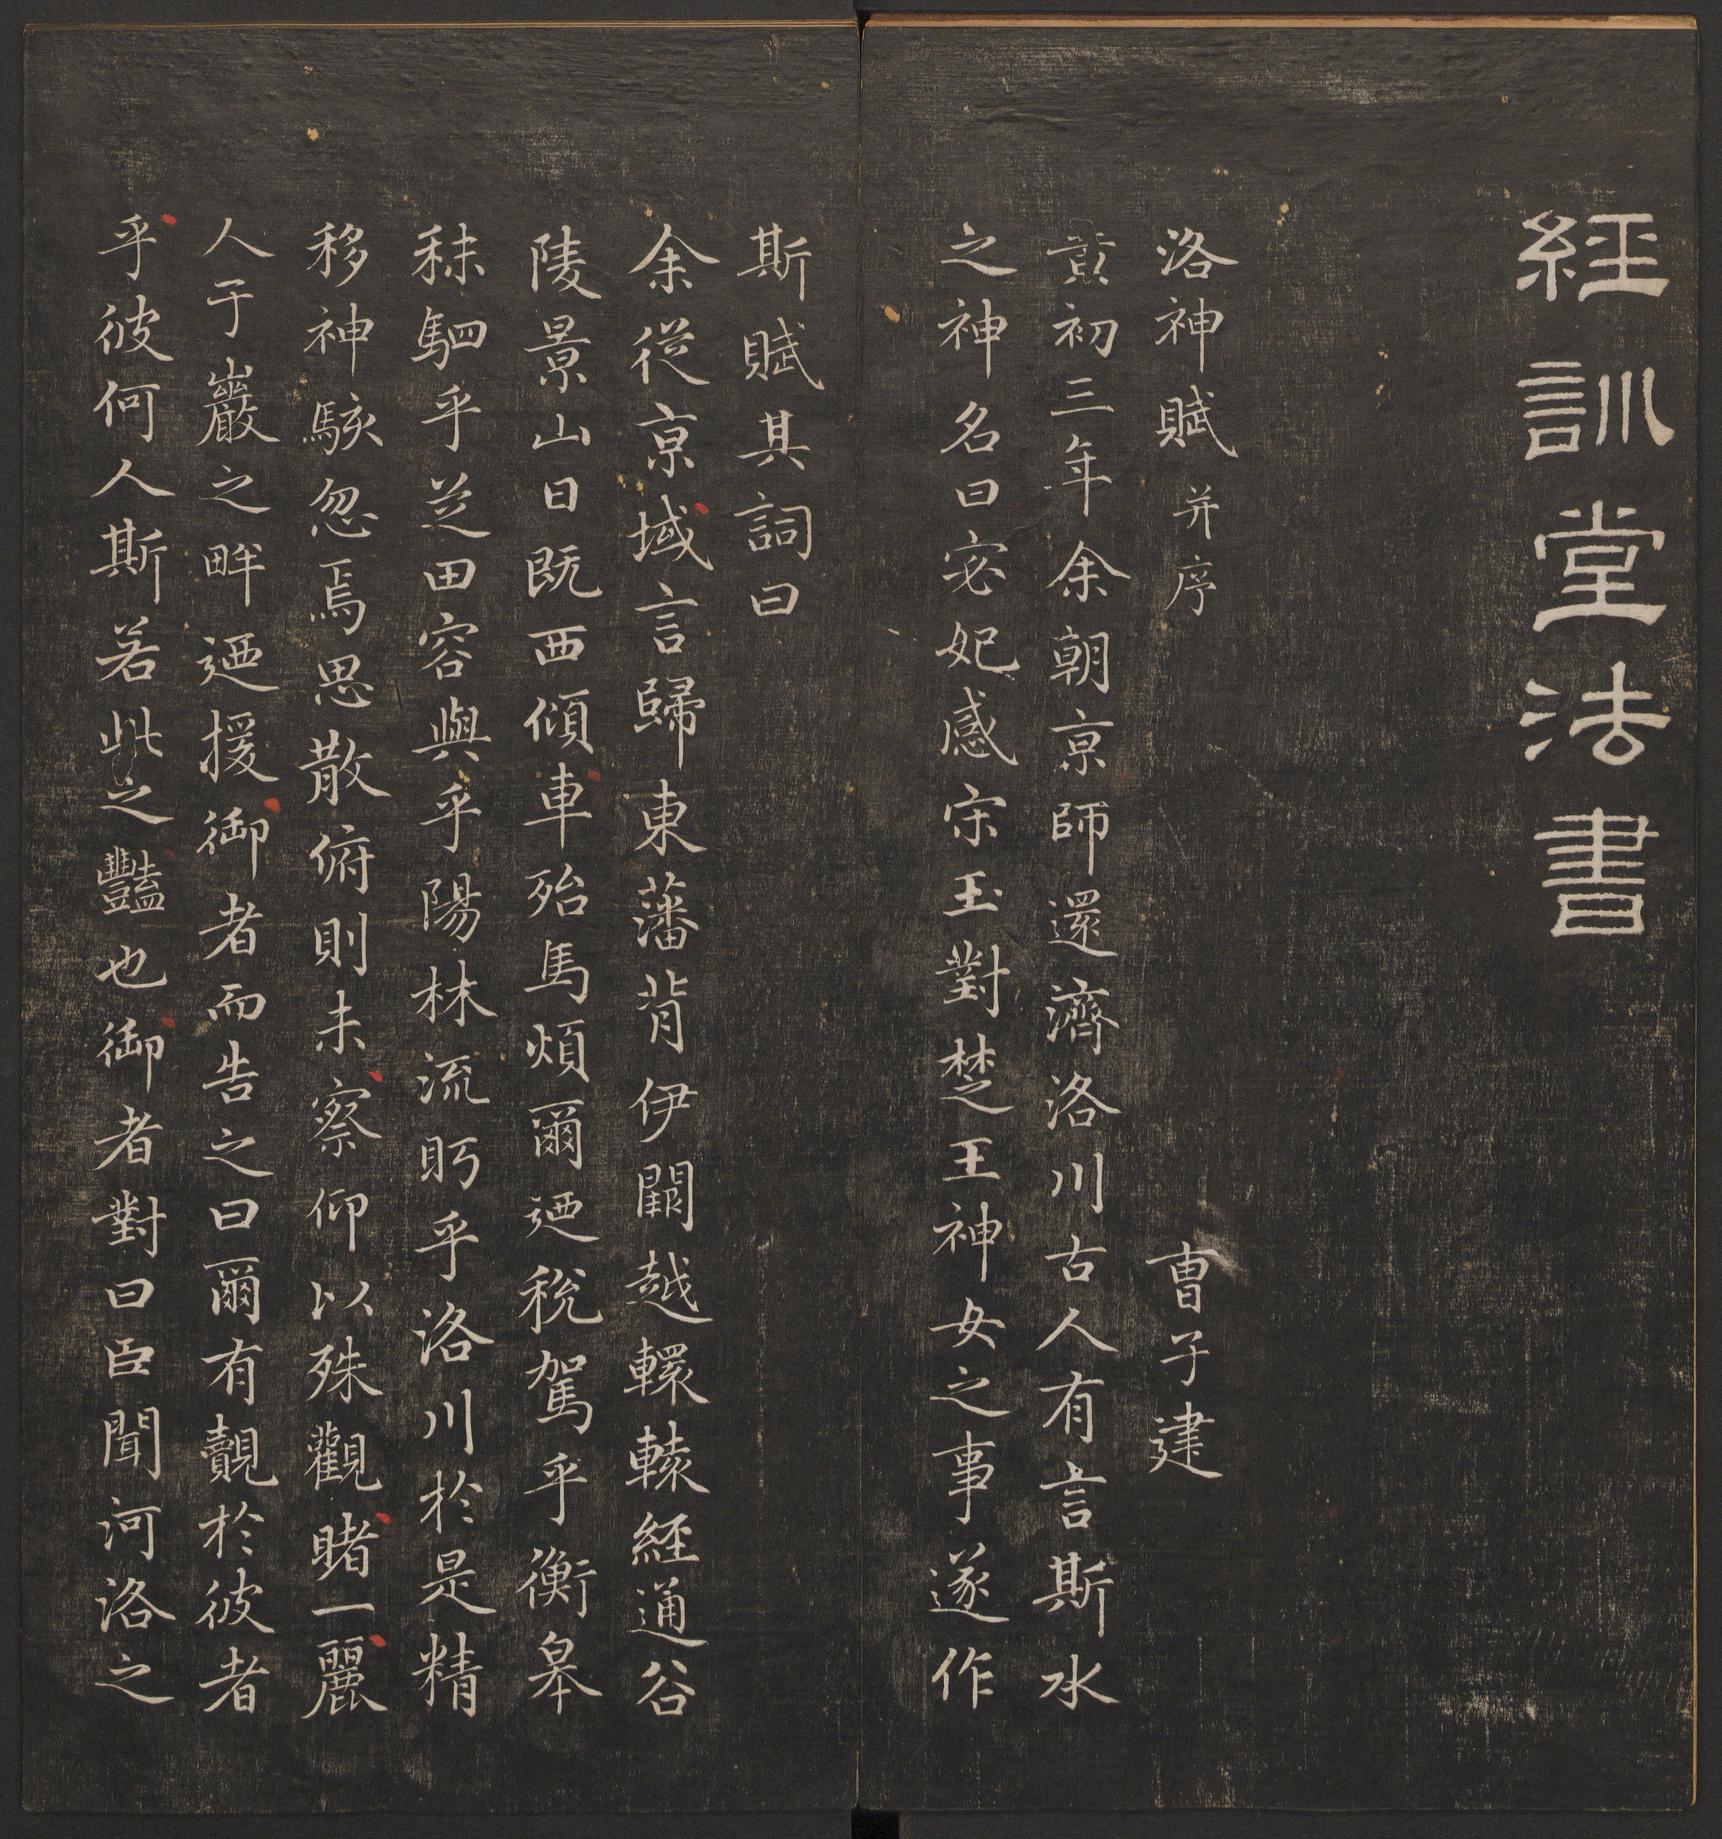 經訓堂法書
洛神賦 并序 曹子建
黃初三年余朝京師還濟洛川古人有言斯水
之神名曰宓妃感宋玉對楚王神女之事遂作
斯賦其詞曰
余從京域言歸東藩背伊闕越轘轅經通谷
陵景山日既西傾車殆馬煩爾迺稅駕乎衡皋
秣駟乎芝田容與乎陽林流眄乎洛川於是精
移神駭忽焉思散俯則未察仰以殊觀睹一麗
人于巖之畔迺援御者而告之曰爾有覿於彼者
乎彼何人斯若此之豔也御者對曰臣聞河洛之